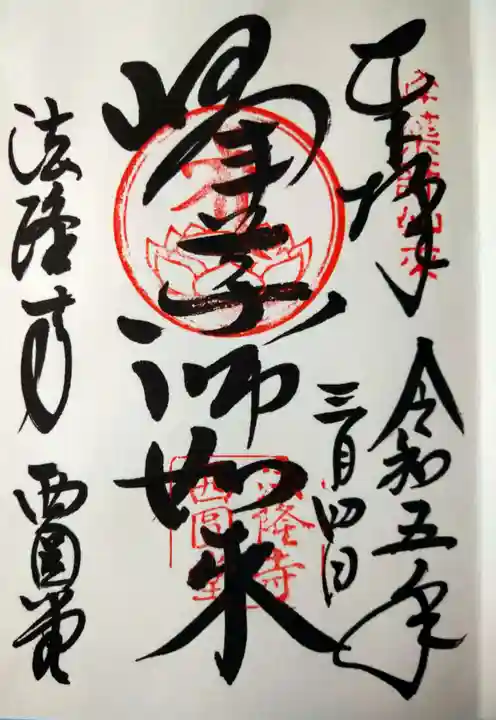 奉拝
令和五年
三月四日
峯薬師如来
法隆寺
西圓堂
法隆寺
西圓堂